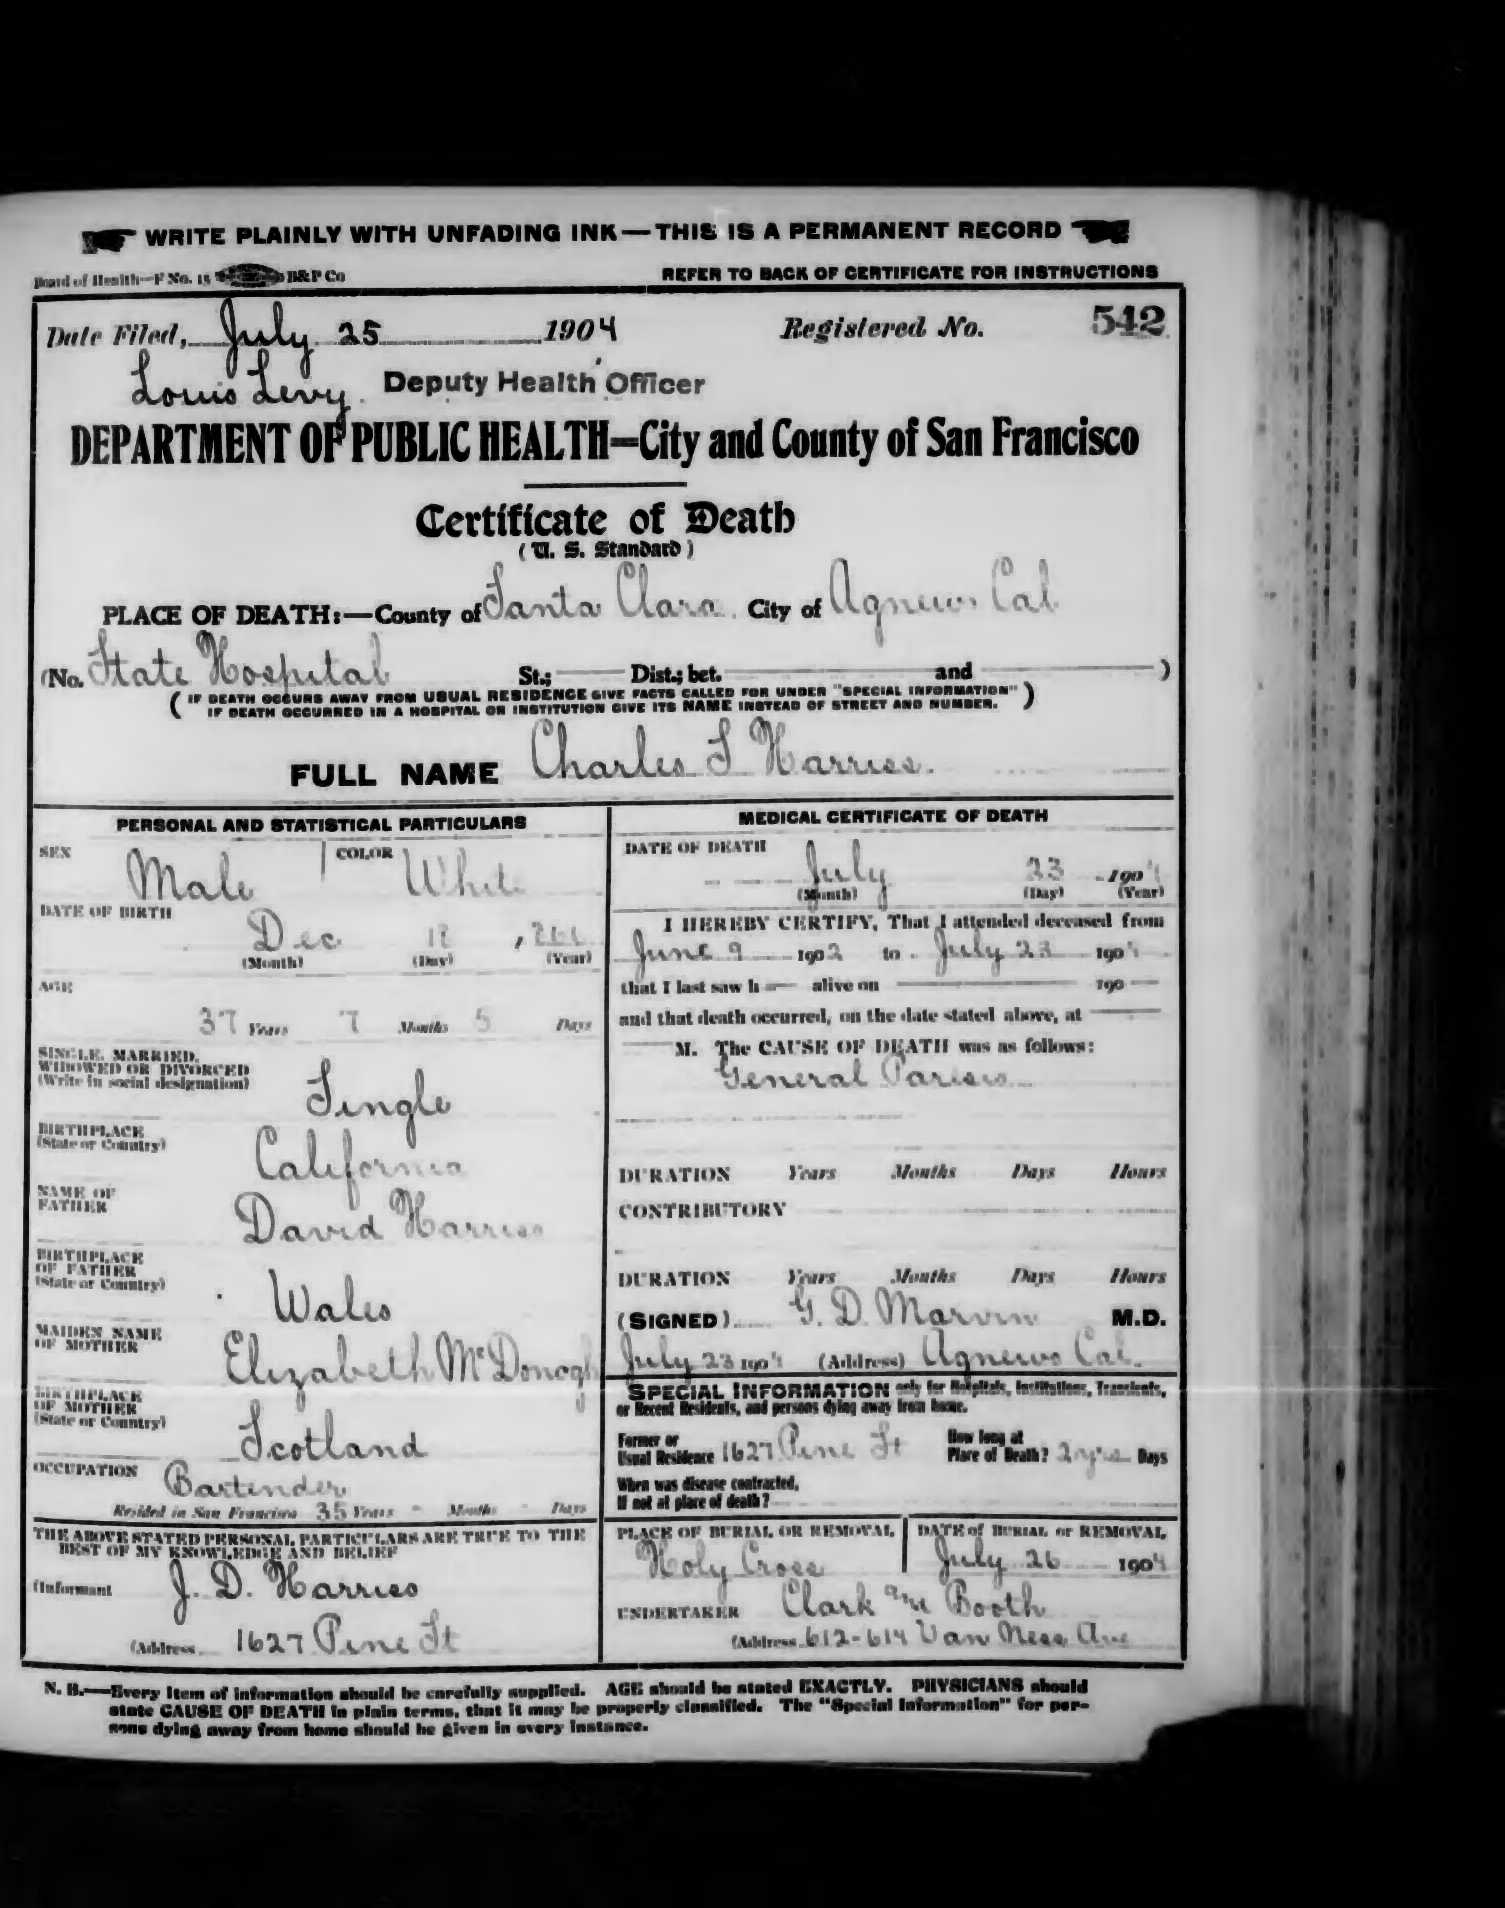 WRITE PLAINLY WITH UNFADING INK—THIS IS A PERMANENT RECORD
Board of Health—F No. 15 B&P Co
REFER TO BACK OF CERTIFICATE FOR INSTRUCTIONS
Date Filed, July 25 1904 Registered No. 542
Louis Levy. Deputy Health Officer
DEPARTMENT OF PUBLIC HEALTH=City and County of San Francisco
Certificate of Death
(U. S. Standard)
PLACE OF DEATH:—County of Santa Clara. City of Agnews Cal
(No. State Hospital St.; Dist.; bet. and )
(IF DEATH OCCURS AWAY FROM USUAL RESIDENCE GIVE FACTS CALLED FOR UNDER "SPECIAL INFORMATION"
IF DEATH OCCURRED IN A HOSPITAL OR INSTITUTION GIVE ITS NAME INSTEAD OF STREET AND NUMBER.)
FULL NAME Charles S Harriss.
PERSONAL AND STATISTICAL PARTICULARS
SEX Male COLOR White
DATE OF BIRTH
Dec 18
(Month) (Day) (Year)
AGE
37 Years 7 Months 5 Days
SINGLE, MARRIED,
WIDOWED OR DIVORCED
(Write in social designation)
Single
BIRTHPLACE
(State or Country)
California
NAME OF
FATHER
David Harriss
BIRTHPLACE
OF FATHER
(State or Country)
Wales
MAIDEN NAME
OF MOTHER
Elizabeth McDonogh
BIRTHPLACE
OF MOTHER
(State or Country)
Scotland
OCCUPATION
Bartender
Resided in San Francisco 35 Years - Months - Days
THE ABOVE STATED PERSONAL PARTICULARS ARE TRUE TO THE
BEST OF MY KNOWLEDGE AND BELIEF
(Informant J. D. Harriss
(Address 1627 Pine St
MEDICAL CERTIFICATE OF DEATH
DATE OF DEATH
July 23 1904
(Month) (Day) (Year)
I HEREBY CERTIFY, That I attended deceased from
June 9 1902 to July 23 1904
that I last saw h — alive on — 190 —
and that death occurred, on the date stated above, at —
— M. The CAUSE OF DEATH was as follows:
General Paresis
DURATION Years Months Days Hours
CONTRIBUTORY
DURATION Years Months Days Hours
(SIGNED) G. D. Marvin M.D.
July 23 1904 (Address) Agnews Cal.
SPECIAL INFORMATION only for Hospitals, Institutions, Transients,
or Recent Residents, and persons dying away from home.
Former or
Usual Residence 1627 Pine St
How long at
Place of Death? 2 yrs Days
When was disease contracted,
If not at place of death?
PLACE OF BURIAL OR REMOVAL
Holy Cross
DATE of BURIAL or REMOVAL
July 26 1904
UNDERTAKER Clark and Booth
(Address 612-614 Van Ness Ave
N. B.—Every item of information should be carefully supplied. AGE should be stated EXACTLY. PHYSICIANS should
state CAUSE OF DEATH in plain terms, that it may be properly classified. The "Special Information" for per-
sons dying away from home should be given in every instance.